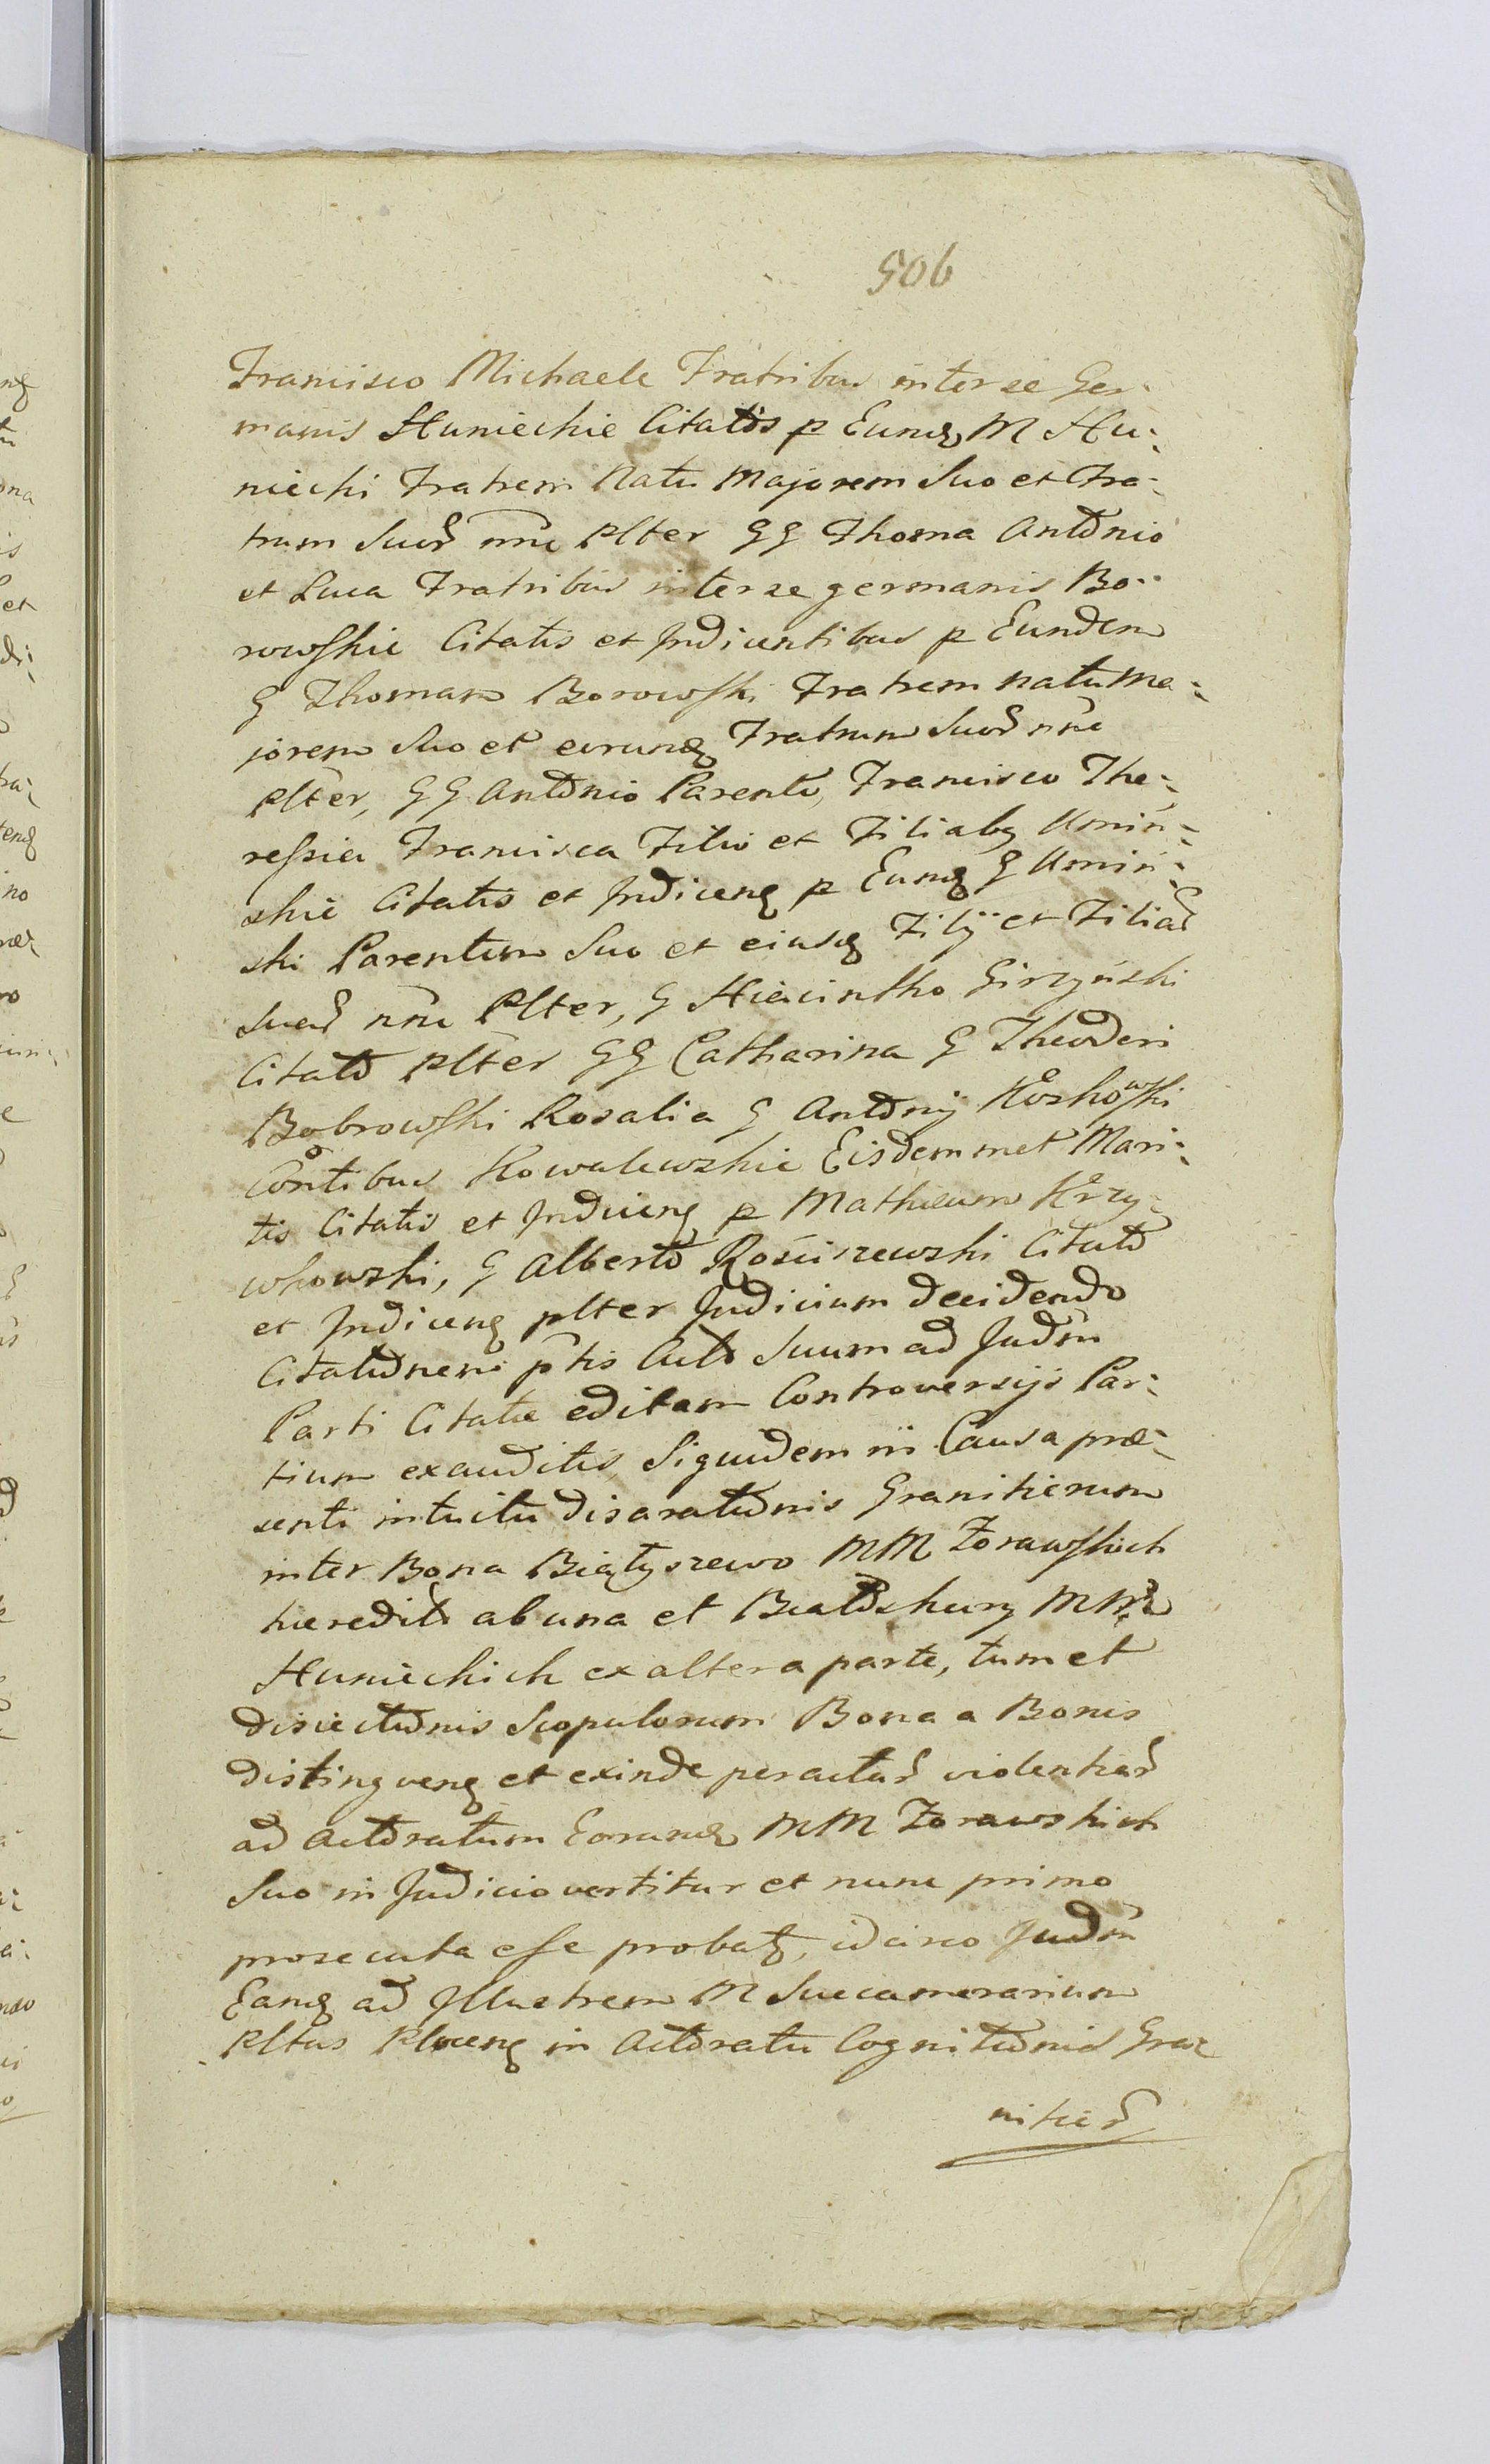 506
Francisco Michaele Fratribus inter se Ger-
manis Humiechie Citatis p Eundq M Hu-
niechi Fratrem Natu Majorem Suo et Fra-
trum Suor nne Plter GG Thoma Antonio
et Luca Fratribus inter se germanis Bo-
rowskie Citatis et Indicentibus p Eundem
G Thomam Borowski Fratrem natu Ma-
jorem Suo et eorundq Fratrum Suor nne
plter, GG Antonio Parente, Francisco The-
ressia Francisca Filio et Filiabq Umin-
skie Citatis et Indicenq p Eundq G Umin-
ski Parentem Suo et eiusdq Filij et Filiar
Suar nne Plter, G Hiacintho Girzyński
Citato plter GG Catharina G Theodori
Bobrowski Rosalia G Antonij Koskowski
Contibus Kowalewskie Eisdemmet Mari-
tis Citatis et Indicenq p Mathaeum Krzy-
wkowski, G Alberto Rościszewski Citato
et Indicenq plter Judicium decidendo
Citationem ptis Acto Suum ad Judm
Parti Citatae editam Controversijs Par-
tium exauditis, Siquidem in Causa præ-
senti intuitu disarationis Granitierum
inter Bona Białyszewo MM Zorawskich
hæredit ab una et Białoskury MM
Humiechich ex altera parte, tum et
disiectionis Scopulorum Bona a Bonis
distingvenq et exinde peractar violentiar
ad Actoratum Eorundq MM Zorawskich
Suo in Judicio vertitur et nunc primo
prosecuta esse probatq, idcirco Judm
Eandq ad Illustrem M Succamerarium
Pltus Plocenq in Actoratu Cognitionis Gra-
nitier